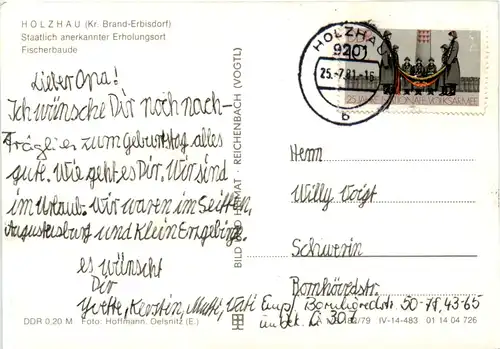 HOLZHAU (Kr. Brand-Erbisdorf)
Staatlich anerkannter Erholungsort
Fischerbaude
Lieber Opa!
Ich wünsche Dir noch nach-
träglich zum Geburtstag alles
gute. Wie geht es Dir. Wir sind
im Urlaub. Wir waren im Seiffen,
Augustusburg und Klein Erzgebirge.
es wünscht
Dir
Yvette, Kerstin, Mutti, Vati
DDR 0,20 M Foto: Hoffmann, Oelsnitz (E.)
BILD UND HEIMAT · REICHENBACH (VOGTL)
HOLZHAU
9201
25.-7.81.-16
b
25 JAHRE NATIONALE VOLKSARMEE
Herrn
Willy Voigt
Schwerin
Bornhövedstr.
Empf. Bornhövedstr. 50-78, 43-65
/79 IV-14-483 01 14 04 726